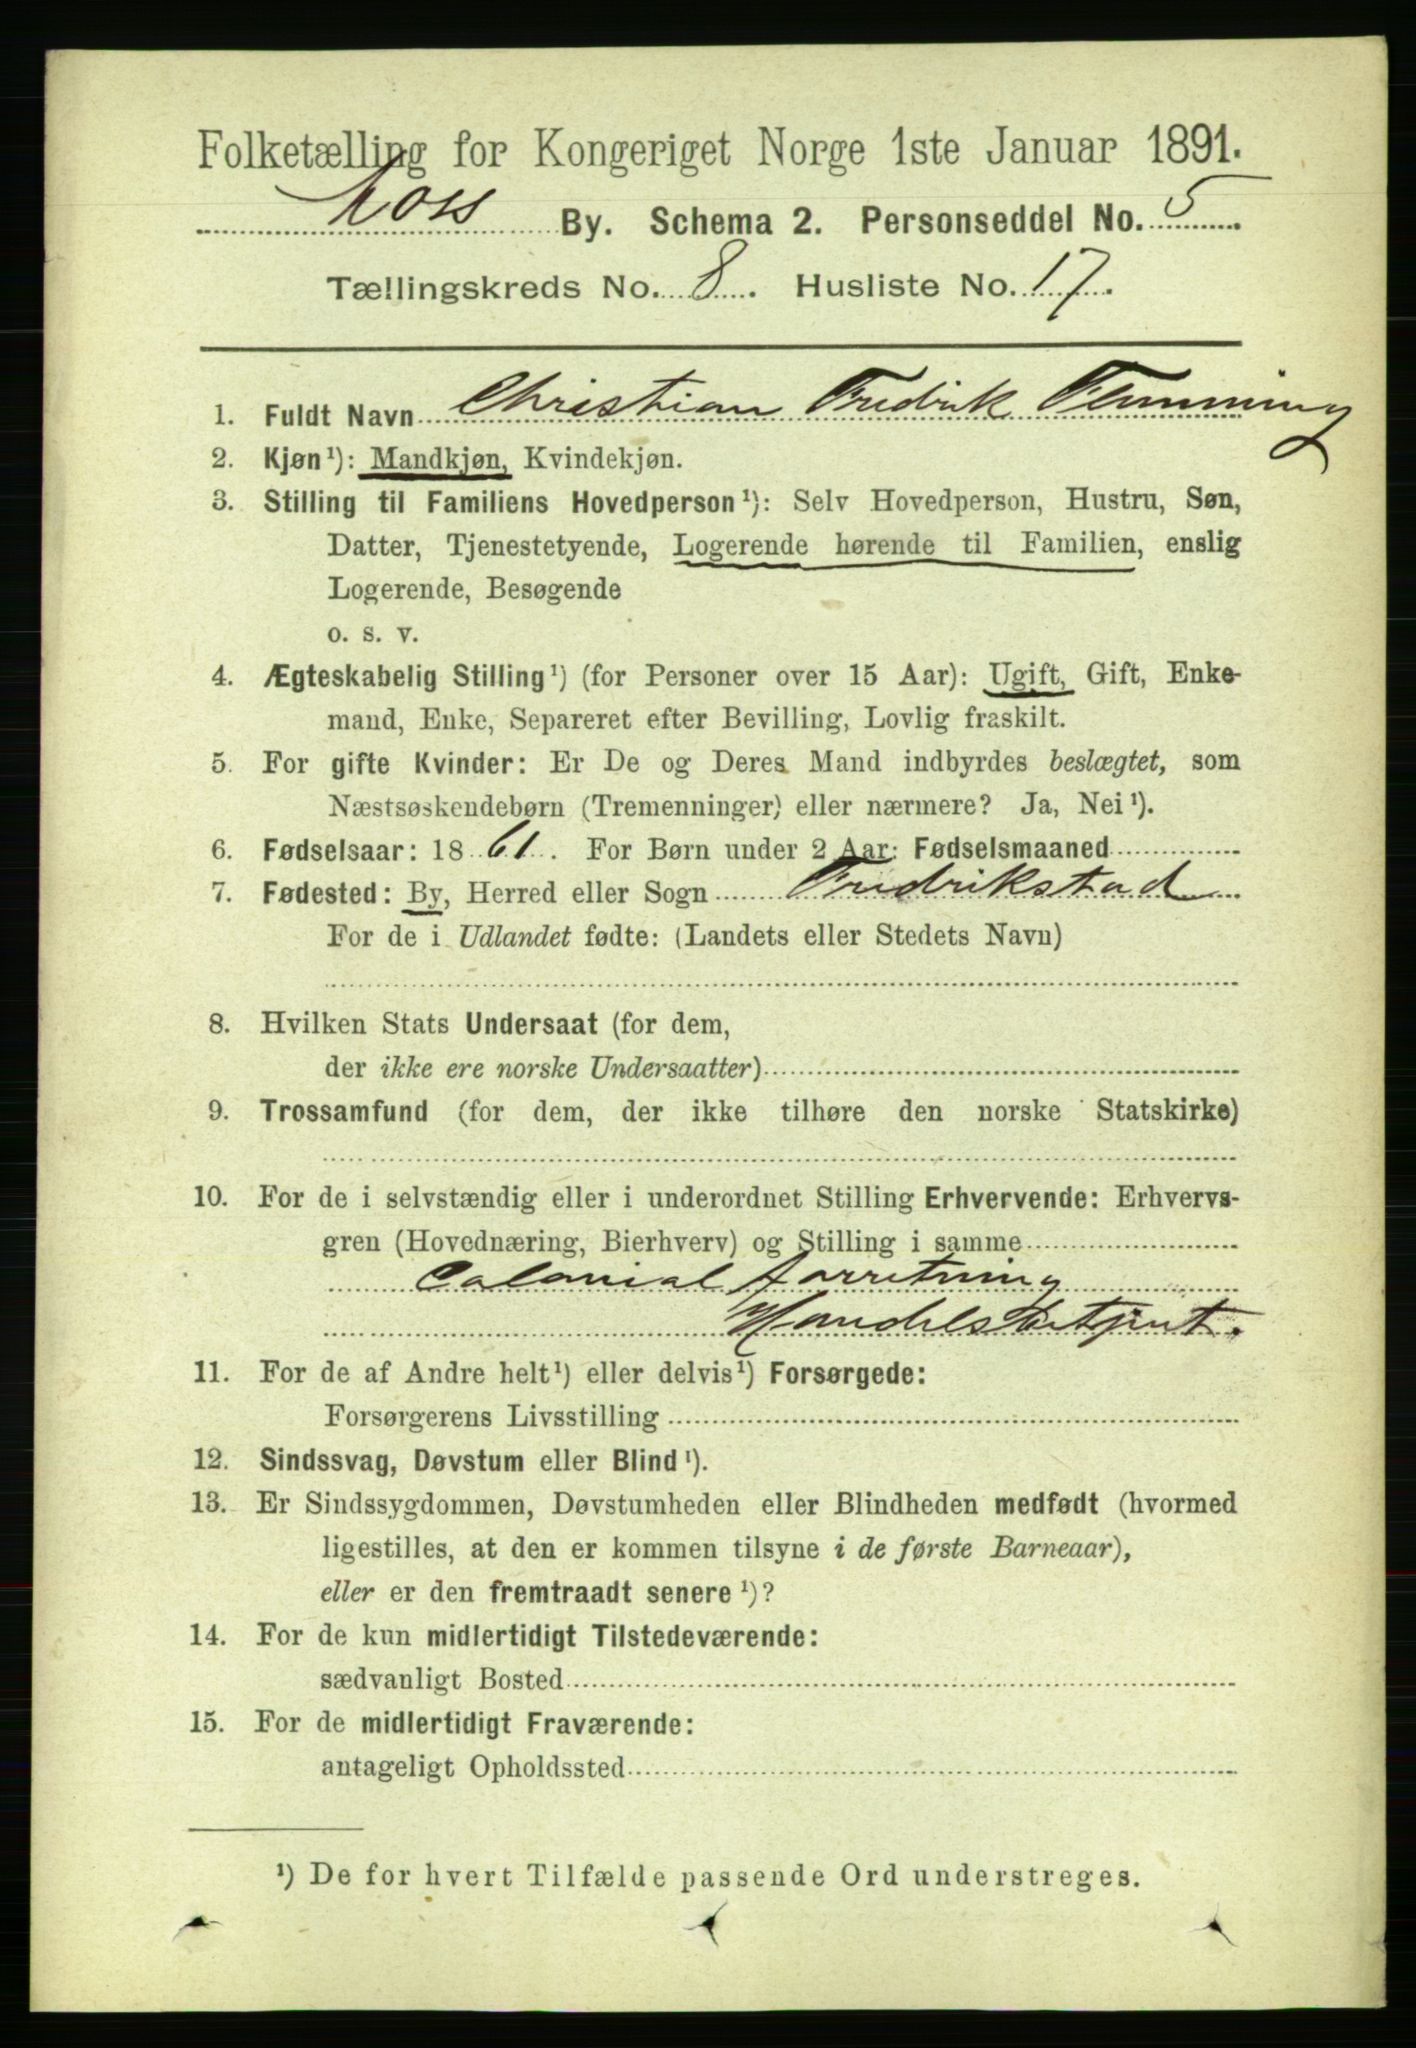 Folketælling for Kongeriget Norge 1ste Januar 1891.
By. Schema 2. Personseddel No. 5.
Tællingskreds No. 8. Husliste No. 17.
1. Fuldt Navn Christian Fredrik Flemming
2. Kjøn¹): Mandkjøn, Kvindekjøn.
3. Stilling til Familiens Hovedperson¹): Selv Hovedperson, Hustru, Søn,
Datter, Tjenestetyende, Logerende hørende til Familien, enslig
Logerende, Besøgende
o. s. v.
4. Ægteskabelig Stilling¹) (for Personer over 15 Aar): Ugift, Gift, Enke-
mand, Enke, Separeret efter Bevilling, Lovlig fraskilt.
5. For gifte Kvinder: Er De og Deres Mand indbyrdes beslægtet, som
Næstsøskendebørn (Tremenninger) eller nærmere? Ja, Nei¹).
6. Fødselsaar: 1861. For Børn under 2 Aar: Fødselsmaaned
7. Fødested: By, Herred eller Sogn Fredrikstad
For de i Udlandet fødte: (Landets eller Stedets Navn)
8. Hvilken Stats Undersaat (for dem,
der ikke ere norske Undersaatter)
9. Trossamfund (for dem, der ikke tilhøre den norske Statskirke)
10. For de i selvstændig eller i underordnet Stilling Erhvervende: Erhvervs-
gren (Hovednæring, Bierhverv) og Stilling i samme
Colonial forretning
Handelsbetjent.
11. For de af Andre helt¹) eller delvis¹) Forsørgede:
Forsørgerens Livsstilling
12. Sindssvag, Døvstum eller Blind¹).
13. Er Sindssygdommen, Døvstumheden eller Blindheden medfødt (hvormed
ligestilles, at den er kommen tilsyne i de første Barneaar),
eller er den fremtraadt senere¹)?
14. For de kun midlertidigt Tilstedeværende:
sædvanligt Bosted
15. For de midlertidigt Fraværende:
antageligt Opholdssted
¹) De for hvert Tilfælde passende Ord understreges.